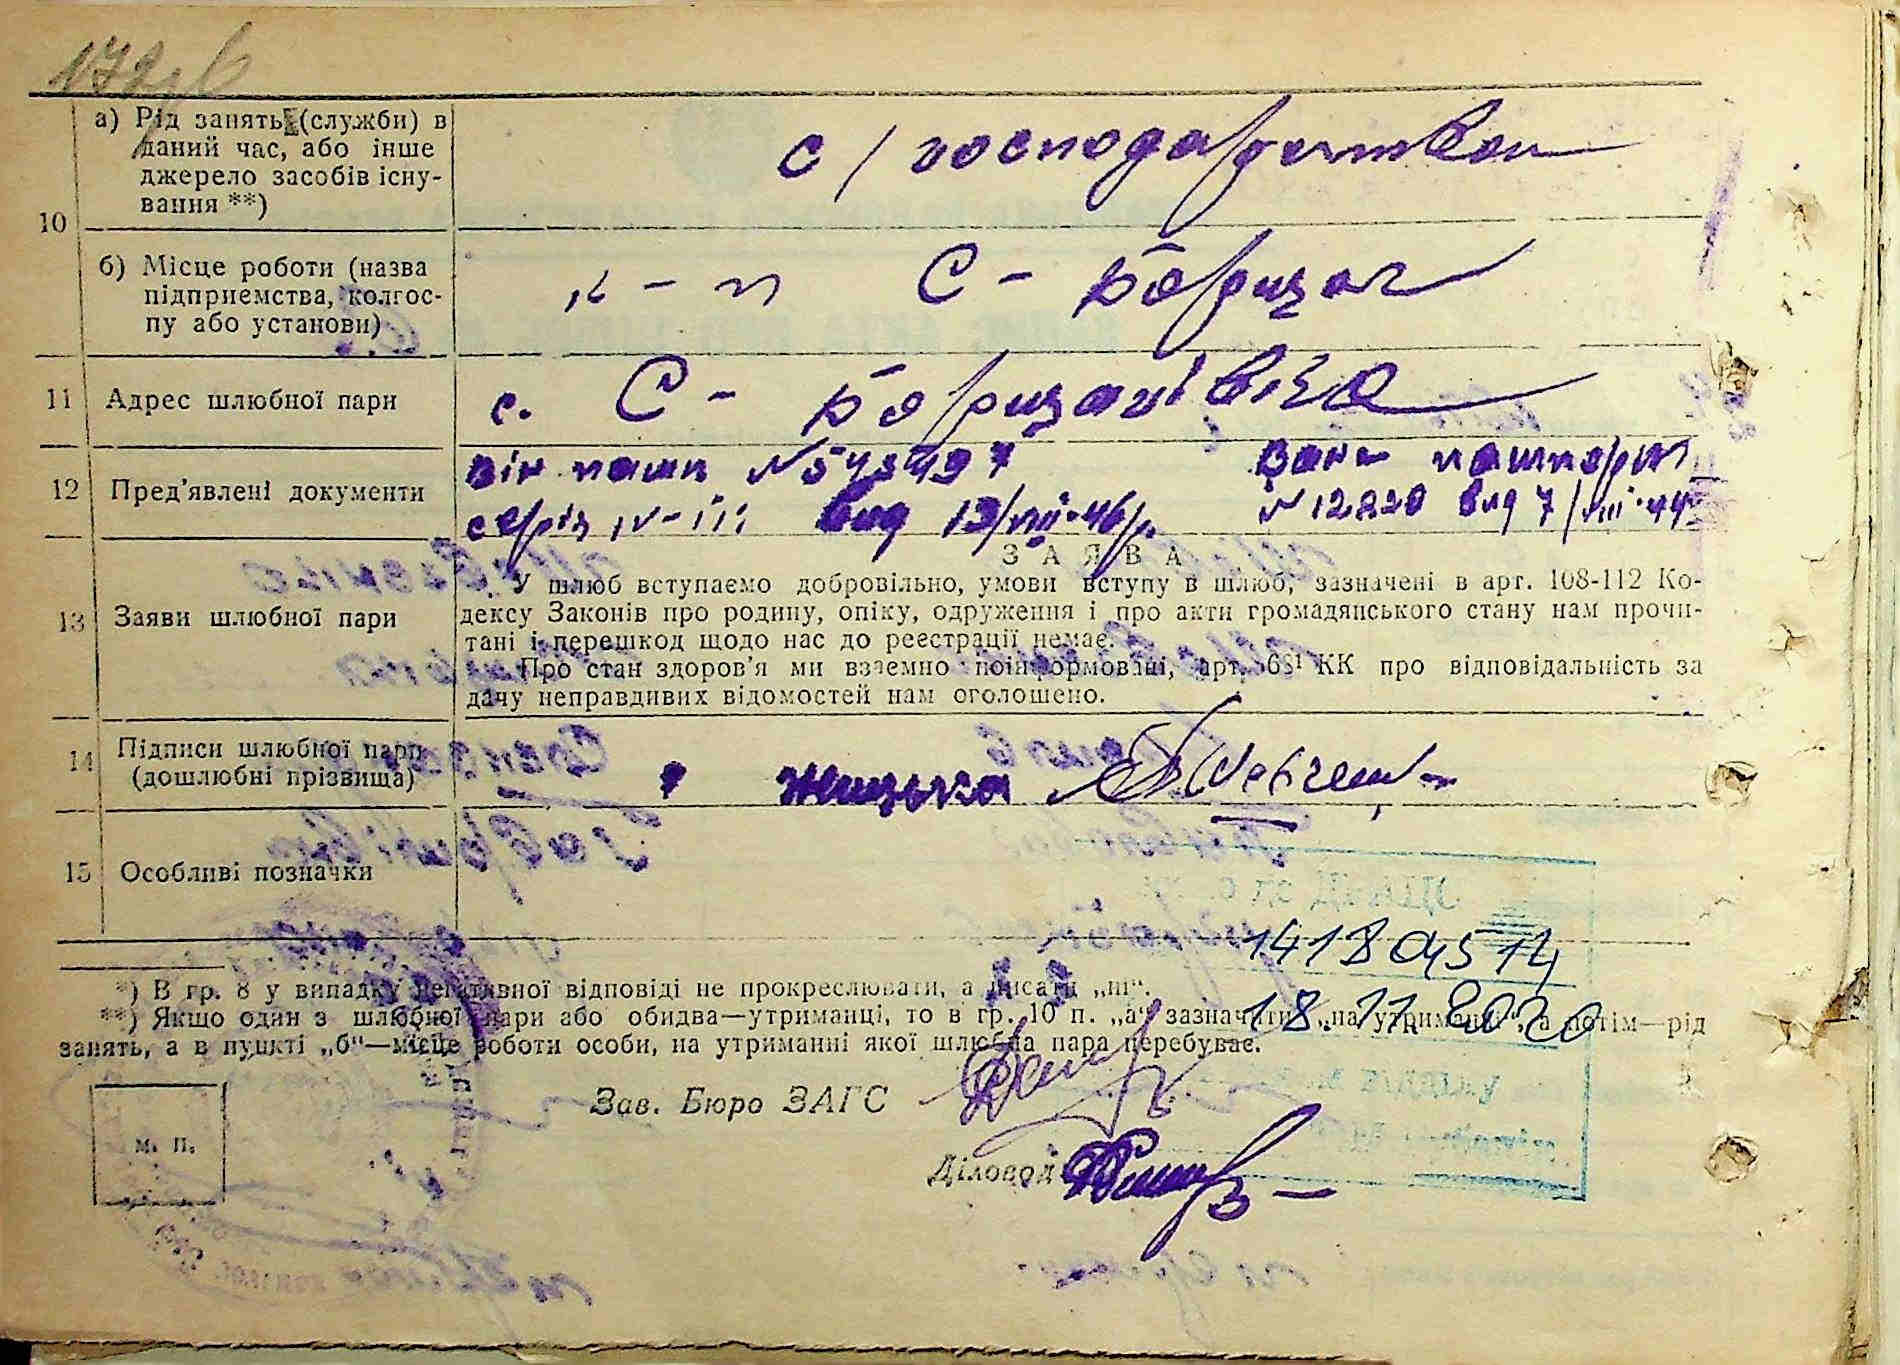 10
а) Рід занять (службы) в
даний час, або інше
джерело засобів існу-
вання **)
с/господарством
б) Місце роботи (назва
підприемства, колгос-
пу або установи)
к-п С-
11
Адрес шлюбної пари
с. С-
12
Пред'явлені документи
він пашп № 543497
серія IV-III вид 13/VII-46р.
Вона пашпорт
№ 12220 вид 7/VIII-44
13
Заяви шлюбної пари
ЗАЯВА
У шлюб вступаємо добровільно, умови вступу в шлюб, зазначені в арт. 108-112 Ко-
дексу Законів про родину, опіку, одруження і про акти громадянського стану нам прочи-
тані і перешкод щодо нас до реестрації немає.
Про стан здоров'я ми взаємно поінформовані, арт. 68¹ КК про відповідальність за
дачу неправдивих відомостей нам оголошено.
14
Підписи шлюбної пари
(дошлюбні прізвища)
15
Особливі позначки
18.11.2020
*) В гр. 8 у випадку негативної відповіді не прокреслювати, а писати „ні“.
**) Якщо один з шлюбної пари або обидва—утриманці, то в гр. 10 п. „а“ зазначити „на утриманні“, а потім—рід
занять, а в пункті „б“—місце роботи особи, на утриманні якої шлюбна пара перебуває.
Зав. Бюро ЗАГС
м. п.
Діловод